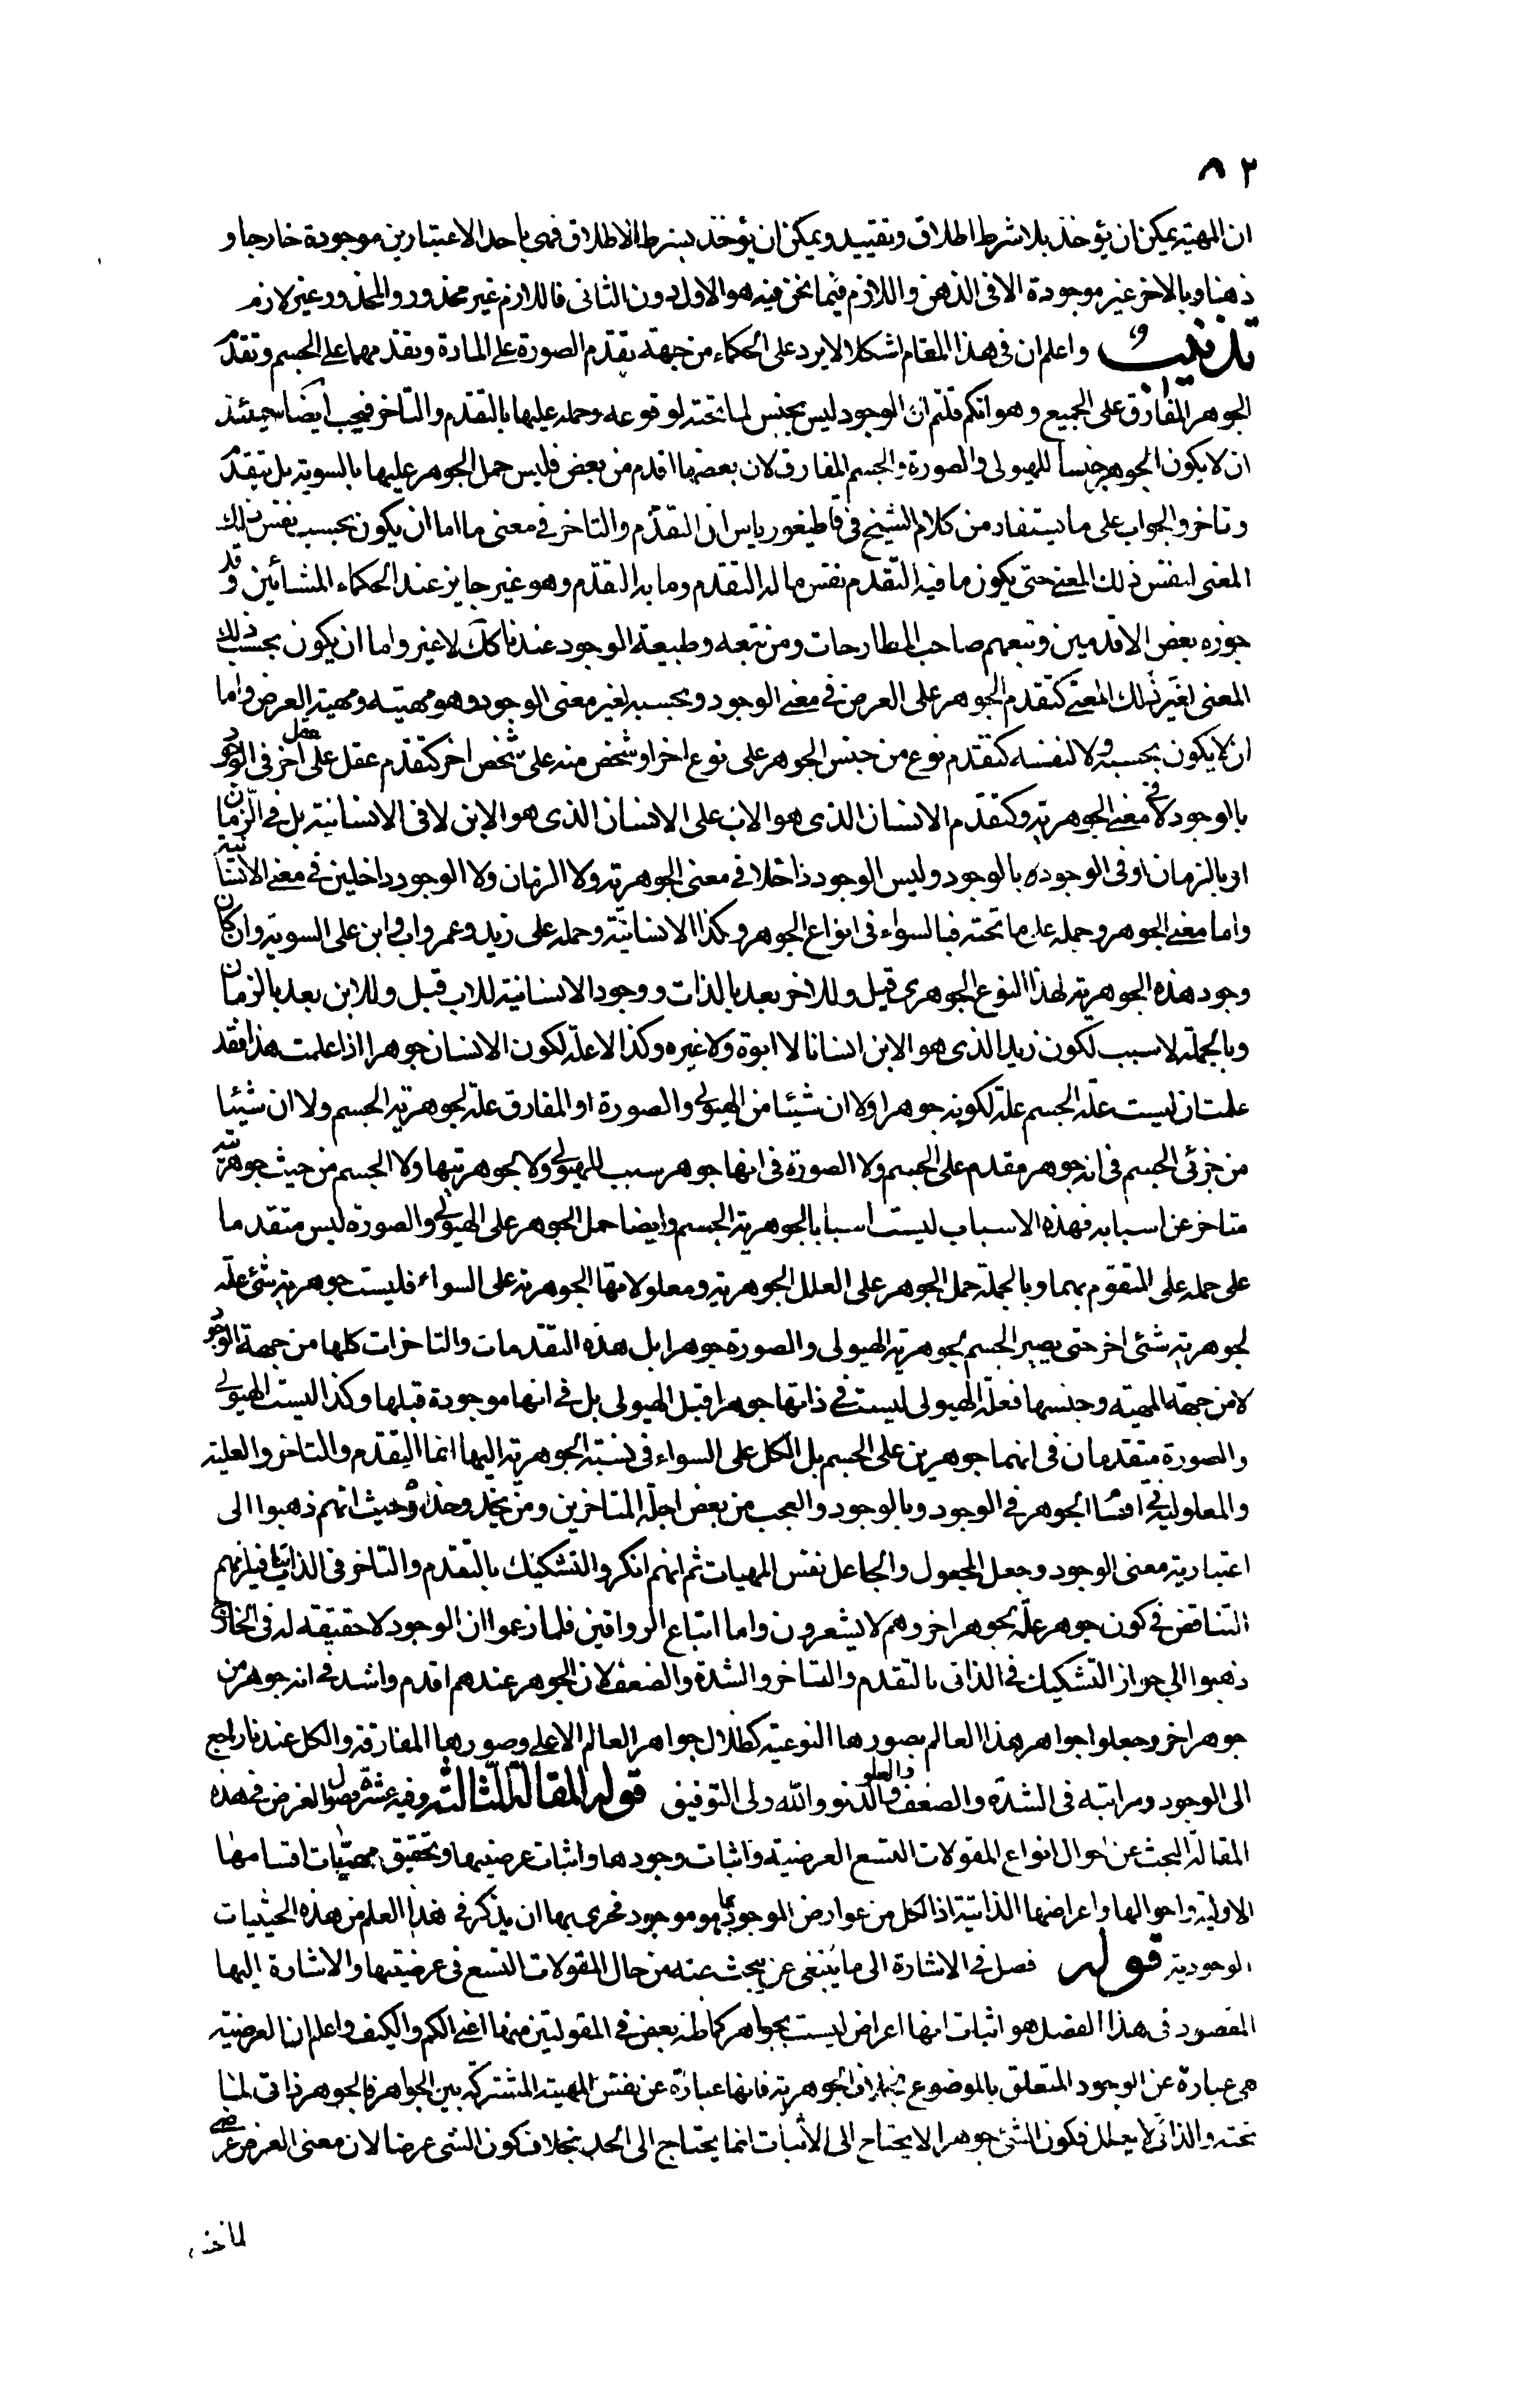 ٨٢
ان المهية يمكن ان يؤخذ بلا شرط اطلاق وتقييد ويمكن ان يؤخذ بشرط الاطلاق فهى باحد الاعتبارين موجودة خارجا و
ذهنا وبالاخر غير موجودة الا فى الذهن واللازم فيما نحن فيه هو الاول دون الثانى فاللازم غير محذور والمحذور غير لازم
تذنيب واعلم ان فى هذا المقام اشكالا يرد على الحكماء من جهة تقدم الصورة على المادة وتقدمهما على الجسم وتقدم
الجوهر المفارق على الجميع وهو انكم قلتم ان الوجود ليس بجنس لما تحته لوقوعه وحمله عليها بالتقدم والتاخر فيجب ايضا حينئذ
ان لا يكون الجوهر جنسا للهيولى والصورة والجسم المفارق لان بعضها اقدم من بعض فليس حمل الجوهر عليها بالسوية بل بتقدم
وتاخر والجواب على ما يستفاد من كلام الشيخ فى قاطيغورياس ان التقدم والتاخر فى معنى ما اما ان يكون بحسب نفس ذلك
المعنى لنفس ذلك المعنى حتى يكون ما فيه التقدم نفس ما له التقدم وما به التقدم وهو غير جايز عند الحكماء المشائين وقد
جوزه بعض الاقدمين وتبعهم صاحب المطارحات ومن تبعه وطبيعة الوجود عندنا كك لا غير واما ان يكون بحسب ذلك
المعنى لغير ذلك المعنى كتقدم الجوهر على العرض فى معنى الوجود وبحسبه لغير معنى الوجود وهو مهيته ومهية العرض واما
ان لا يكون بحسبه ولا لنفسه كتقدم نوع من جنس الجوهر على نوع اخر او شخص منه على شخص اخر كتقدم عقل على عقل اخر فى الوجود
بالوجود لا فى معنى الجوهرية وكتقدم الانسان الذى هو الاب على الانسان الذى هو الابن لا فى الانسانية بل فى الزمان
اى بالزمان او فى الوجود بالوجود وليس الوجود داخلا فى معنى الجوهرية ولا الزمان ولا الوجود داخلين فى معنى الانسانية
واما معنى الجوهر وحمله على ما تحته فبالسواء فى انواع الجوهر وكذا الانسانية وحمله على زيد وعمرو اب وابن على السوية وان كان
وجود هذه الجوهرية لهذا النوع الجوهرى قبل وللاخر بعد بالذات ووجود الانسانية للاب قبل وللابن بعد بالزمان
وبالجملة لا سبب لكون زيد الذى هو الابن انسانا لا ابوة ولا غيره وكذا لا علة لكون الانسان جوهرا اذا علمت هذا فقد
علمت ان ليست علة الجسم علة لكونه جوهرا ولا ان شيئا من الهيولى والصورة او المفارق علة لجوهرية الجسم ولا ان شيئا
من جزئى الجسم فى انه جوهر مقدم على الجسم ولا الصورة فى انها جوهر سبب للهيولى ولا لجوهريتها ولا الجسم من حيث جوهريته
متاخر عن اسبابه فهذه الاسباب ليست اسبابا لجوهرية الجسم وايضا حمل الجوهر على الهيولى والصورة ليس متقدما
على حمله على المتقوم بهما وبالجملة حمل الجوهر على العلل الجوهرية ومعلولاتها الجوهرية على السواء فليست جوهرية شئ علة
لجوهرية شئ اخر حتى يصير الجسم بجوهرية الهيولى والصورة جوهرا بل هذه التقدمات والتاخرات كلها من جهة الوجود
لا من جهة المهية وجنسها فعلة الهيولى ليست فى ذاتها جوهرا قبل الهيولى بل فى انها موجودة قبلها وكذا ليست الهيولى
والصورة متقدمان فى انهما جوهرين على الجسم بل الكل على السواء فى نسبة الجوهرية اليها انما التقدم والتاخر والعلية
والمعلولية فى اقسام الجوهر فى الوجود وبالوجود والعجب من بعض اجلة المتاخرين ومن يحذو حذوه حيث انهم ذهبوا الى
اعتبارية معنى الوجود وجعل المجعول والجاعل نفس المهيات ثم انهم انكروا التشكيك بالتقدم والتاخر فى الذاتيات فيلزمهم
التناقض فى كون جوهر علة لجوهر اخر وهم لا يشعرون واما اتباع الرواقيين فلما زعموا ان الوجود لا حقيقة له فى الخارج
ذهبوا الى جواز التشكيك فى الذاتى بالتقدم والتاخر والشدة والضعف لان الجوهر عندهم اقدم واشد فى انه جوهر من
جوهر اخر وجعلوا جواهر هذا العالم بصورها النوعية كظلال جواهر العالم الاعلى وصورها المفارقة والكل عندنا راجع
الى الوجود ومراتبه فى الشدة والضعف والعلو والدنو والله ولى التوفيق قوله المقالة الثالثة وفيه عشرة فصول الغرض فى هذه
المقالة البحث عن احوال انواع المقولات التسع العرضية واثبات وجودها واثبات عرضيتها وتحقيق مهيات اقسامها
الاولية واحوالها واعراضها الذاتية اذ الكل من عوارض الموجود بما هو موجود فحرى بها ان يذكر فى هذا العلم من هذه الحيثيات
الوجودية قوله فصل فى الاشارة الى ما ينبغى عن يبحث عنه من حال المقولات التسع فى عرضيتها والاشارة اليها
المقصود فى هذا الفصل هو اثبات انها اعراض ليست بجواهر كما ظنه بعض فى المقولتين منها اعنى الكم والكيف واعلم ان العرضية
هى عبارة عن الوجود المتعلق بالموضوع بخلاف الجوهرية فانها عبارة عن نفس المهية المشتركة بين الجواهر فالجوهر ذاتى لما
تحته والذاتى لا يعلل فكون الشئ جوهرا لا يحتاج الى الاثبات انما يحتاج الى الحد بخلاف كون الشى عرضا لان معنى العرض عرضى